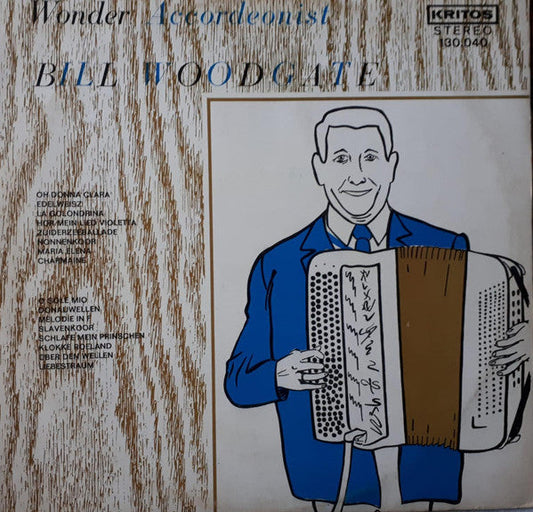 Wonder Accordeonist
KRITOS
STEREO
130.040
BILL WOODGATE
OH DONNA CLARA
EDELWEISZ
LA GOLONDRINA
HÖR MEIN LIED VIOLETTA
ZUIDERZEEBALLADE
NONNENKOOR
MARIA ELENA
CHARMAINE
O SOLE MIO
DONAUWELLEN
MELODIE IN F
SLAVENKOOR
SCHLAFE MEIN PRINSCHEN
KLOKKE ROELAND
ÜBER DEN WELLEN
LIEBESTRAUM